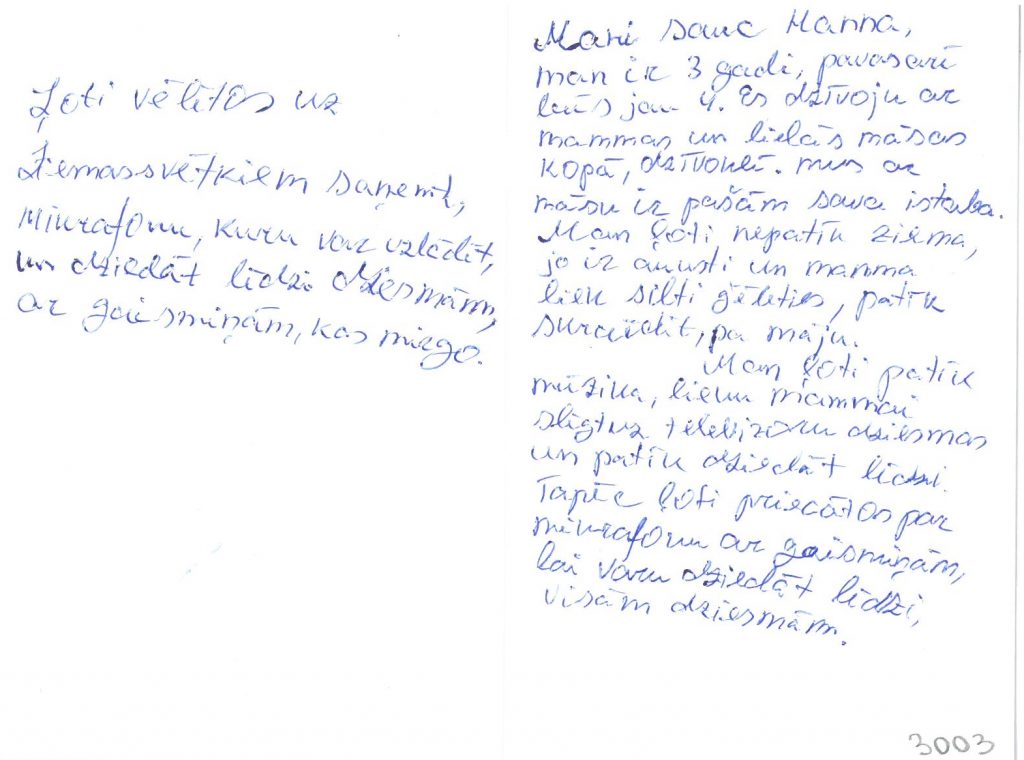 Ļoti vēlētos uz
Ziemassvētkiem saņemt,
mikrafonu, kuru var uzlādēt,
un dziedāt līdzi dziesmām,
ar gaismiņām, kas mirgo.
Mani sauc Hanna,
man ir 3 gadi, pavasarī
būs jau 4. Es dzīvoju ar
mammas un lielās māsas
kopā, dzīvoklī. mus ar
māsu ir pašām sava istaba.
Man ļoti nepatīk ziema,
jo ir auksti un mamma
liek silti ģērbties, patīk
skraidīt, pa māju.
Man ļoti patīk
mūzika, lieku mammai
slēgt uz televizoru dziesmas
un patīk dziedāt līdzi.
Tapēc ļoti priecātos par
mikrafonu ar gaismiņām,
lai varu dziedāt līdzi,
visām dziesmām.
3003